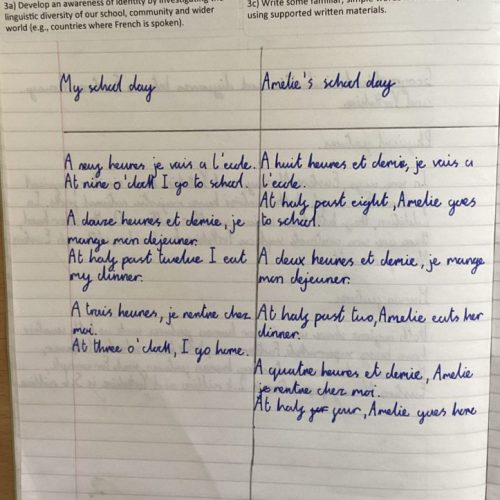 3a) Develop an awareness of identity by investigating the
linguistic diversity of our school, community and wider
world (e.g., countries where French is spoken).
3c) Write some familiar, simple
using supported written materials.
My school day
Amelie's school day
A neuf heures je vais a l'ecole.
At nine o'clock I go to school.
A douze heures et demie, je
mange mon dejeuner.
At half past twelve I eat
my dinner.
A trois heures, je rentre chez
moi.
At three o'clock, I go home.
A huit heures et demie, je vais a
l'ecole.
At half past eight, Amelie goes
to school.
A deux heures et demie, je mange
mon dejeuner.
At half past two, Amelie eats her
dinner.
A quatre heures et demie, Amelie
rentre chez moi.
At half four, Amelie goes home